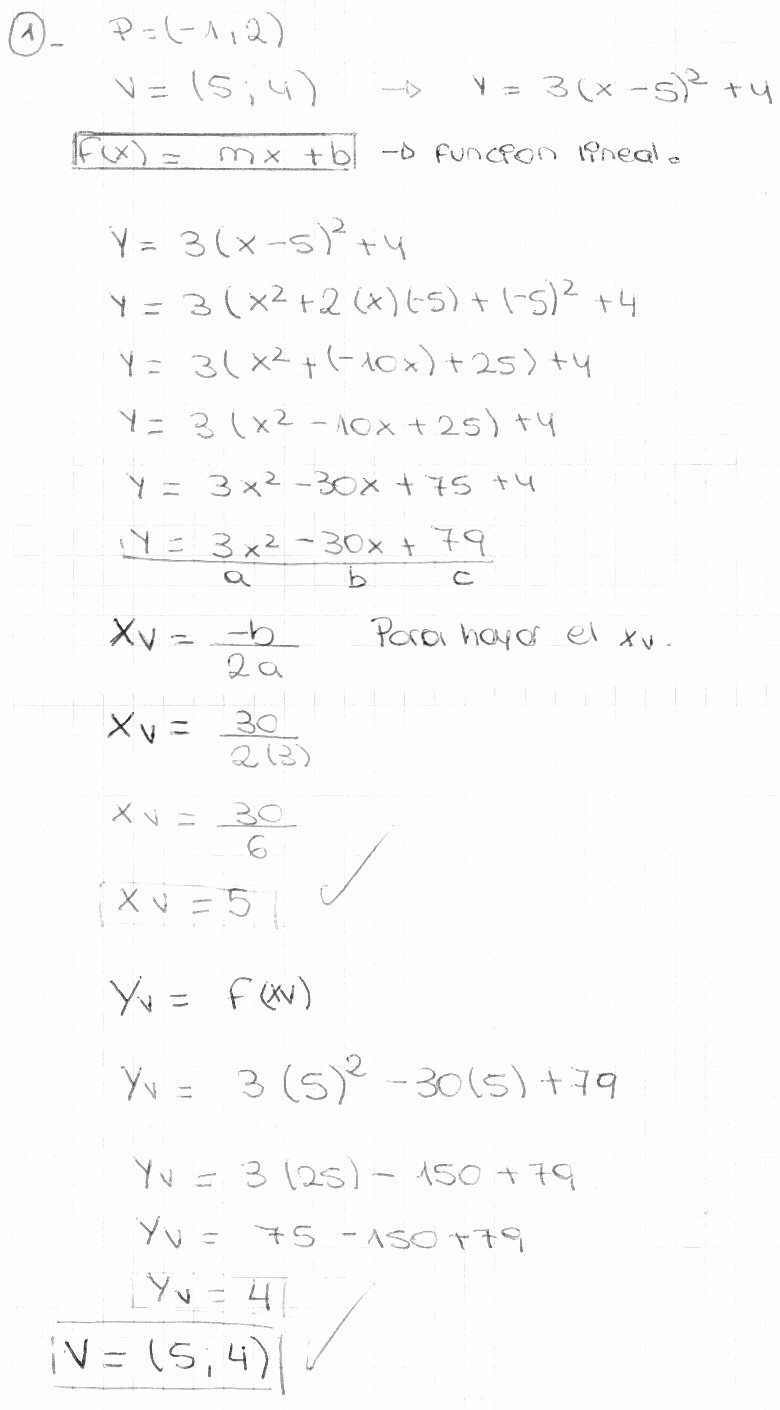 ①- P=(-1,2)
V = (5;4) → Y = 3(x-5)² +4
F(x) = mx +b → Función lineal.
Y = 3(x-5)² +4
Y = 3(x²+2(x)(-5)+(-5)² +4
Y = 3(x²+(-10x)+25)+4
Y = 3(x² -10x +25) +4
Y = 3x² -30x + 75 +4
Y = 3x² -30x + 79
a b c
Xv = -b/2a Para hayar el xv.
Xv = 30/2(3)
Xv = 30/6
Xv = 5 ✓
Yv = F(xv)
Yv = 3(5)² -30(5) +79
Yv = 3(25) - 150 +79
Yv = 75 -150+79
Yv = 4
V = (5;4) ✓